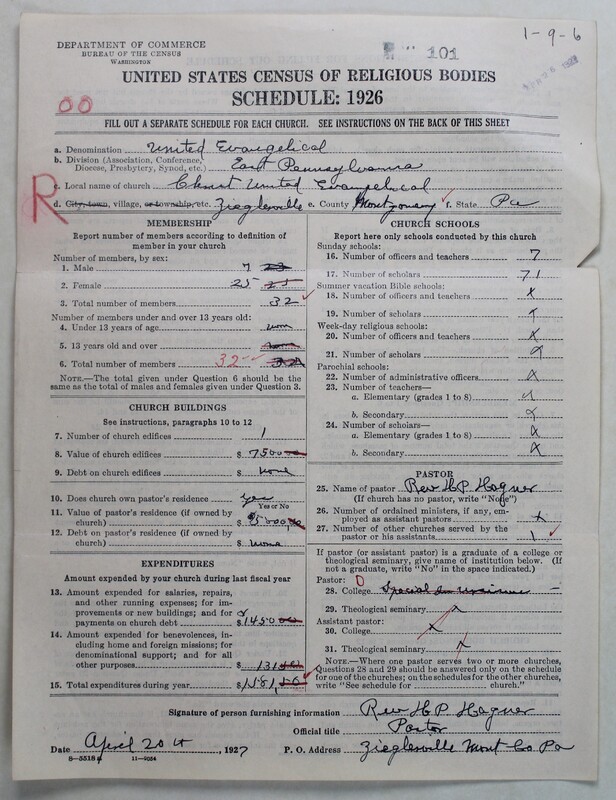 1-9-6
DEPARTMENT OF COMMERCE
BUREAU OF THE CENSUS
WASHINGTON
101
UNITED STATES CENSUS OF RELIGIOUS BODIES
SCHEDULE: 1926
00
FILL OUT A SEPARATE SCHEDULE FOR EACH CHURCH. SEE INSTRUCTIONS ON THE BACK OF THIS SHEET
a. Denomination United Evangelical
b. Division (Association, Conference, Diocese, Presbytery, Synod, etc.) East Pennsylvania
R
c. Local name of church Christ United Evangelical
d. City, town, village, or township, etc. Zieglersville e. County Montgomery f. State Pa
MEMBERSHIP
Report number of members according to definition of
member in your church
Number of members, by sex:
1. Male 7
2. Female 25
3. Total number of members 32
Number of members under and over 13 years old:
4. Under 13 years of age none
5. 13 years old and over
6. Total number of members 32
NOTE.—The total given under Question 6 should be
the same as the total of males and females given under Question 3.
CHURCH BUILDINGS
See instructions, paragraphs 10 to 12
7. Number of church edifices 1
8. Value of church edifices $ 7500
9. Debt on church edifices $ none
10. Does church own pastor's residence yes
Yes or No
11. Value of pastor's residence (if owned by
church) $ 5000
12. Debt on pastor's residence (if owned by
church) $ none
EXPENDITURES
Amount expended by your church during last fiscal year
13. Amount expended for salaries, repairs,
and other running expenses; for im-
provements or new buildings; and for
payments on church debt $ 1450
14. Amount expended for benevolences, in-
cluding home and foreign missions; for
denominational support; and for all
other purposes $ 131
15. Total expenditures during year $ 1581
CHURCH SCHOOLS
Report here only schools conducted by this church
Sunday schools:
16. Number of officers and teachers 7
17. Number of scholars 71
Summer vacation Bible schools:
18. Number of officers and teachers x
19. Number of scholars x
Week-day religious schools:
20. Number of officers and teachers x
21. Number of scholars x
Parochial schools:
22. Number of administrative officers x
23. Number of teachers—
a. Elementary (grades 1 to 8) x
b. Secondary x
24. Number of scholars—
a. Elementary (grades 1 to 8) x
b. Secondary x
PASTOR
25. Name of pastor Rev H P Hagner
(If church has no pastor, write "None")
26. Number of ordained ministers, if any, em-
ployed as assistant pastors x
27. Number of other churches served by the
pastor or his assistants 1
If pastor (or assistant pastor) is a graduate of a college or
theological seminary, give name of institution below. (If
not a graduate, write "No" in the space indicated.)
Pastor: 0
28. College Special in Ursinus
29. Theological seminary x
Assistant pastor:
30. College x
31. Theological seminary x
NOTE.—Where one pastor serves two or more churches,
Questions 28 and 29 should be answered only on the schedule
for one of the churches; on the schedules for the other churches,
write "See schedule for church."
Signature of person furnishing information Rev H P Hagner
Official title Pastor
Date April 20th, 1927 P. O. Address Zieglersville Mont Co Pa
8-5518a 11-9054